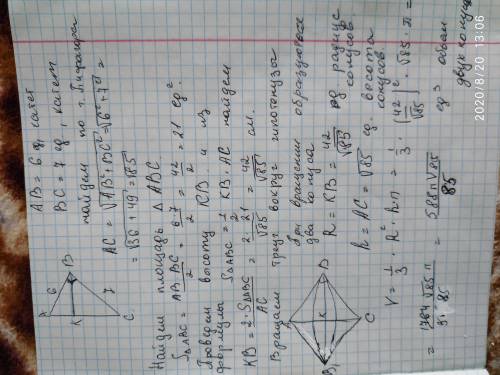 AB = 6 ед. катет
BC = 7 ед. катет
найдем по т. Пифагора
AC = √AB²+BC² = √6²+7² =
= √36+49 = √85
A
6
B
K
7
C
Найдем площадь Δ ABC
SΔABC = AB·BC/2 = 6·7/2 = 42/2 = 21 ед²
Проведем высоту KB и из
формулы SΔABC = 1/2 KB·AC найдем
KB = 2·SΔABC/AC = 2·21/√85 = 42/√85 см.
Вращаем треуг вокруг гипотенузы
A
B
K
B₁
C
При вращении образуется
два конуса
R = KB = 42/√85 ед радиус конусов
h = AC = √85 ед. высота конусов.
V = 1/3 · R²·h·π = 1/3 · (42/√85)² · √85 · π =
= 1764√85π/3·85 = 588π√85/85 ед³ объем
двух конусов
2020/8/20 13:06